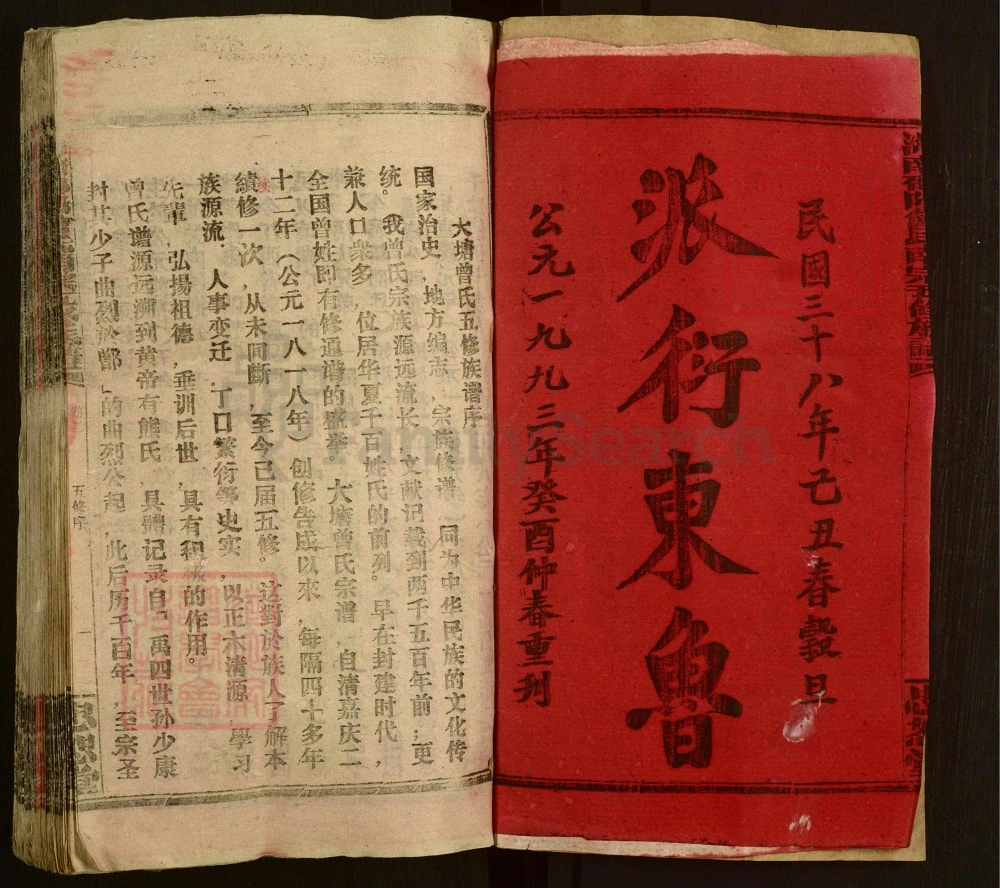 民國三十八年己丑春穀旦
派衍東魯
公元一九九三年癸酉仲春重刊
大塘曾氏五修族谱序
国家治史，地方编志，宗族修谱，同为中华民族的文化传
统。我曾氏宗族源远流长，文献记载到两千五百年前；更
兼人口衆多，位居华夏千百姓氏的前列。早在封建时代，
全国曾姓即有修通谱的盛举，大塘曾氏宗谱，自清嘉庆二
十二年（公元一八一八年）创修告成以來，每隔四十多年
續修一次，从未间斷，至今已届五修。这對於族人了解本
族源流，人事变迁，丁口繁衍等史实，以正本清源，學习
先輩，弘揚祖德，垂训后世，具有积极的作用。
曾氏谱源远溯到黄帝有熊氏，具體记录自「禹四世孙少康
封其少子曲烈於鄫」的曲烈公起，此后历千百年，至宗圣
五修序
FamilySearch